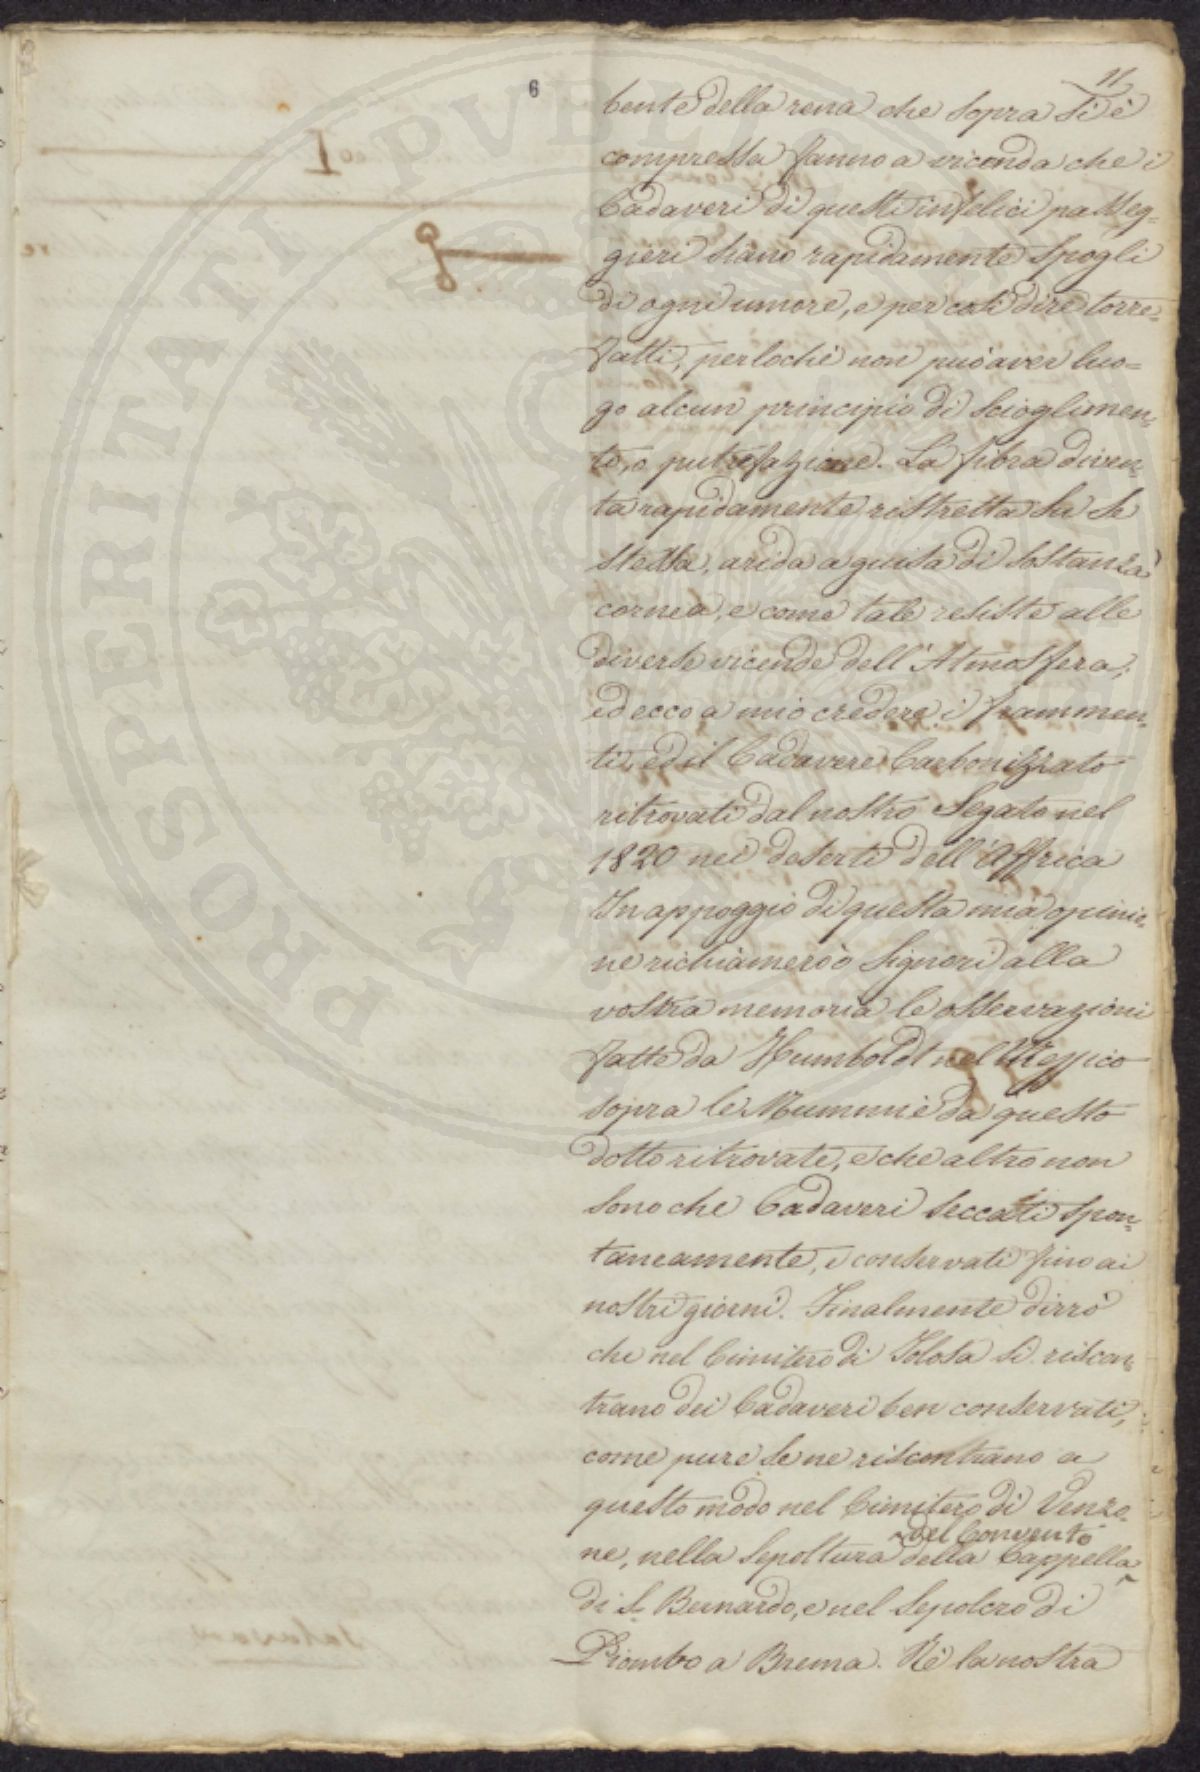 11
6
bente della rena che sopra si è
compressa fanno a vicenda che i
Cadaveri di questi infelici passeg-
gieri siano rapidamente spogli
di ogni umore, e per così dire torre-
fatti, perlochè non può aver luo=
go alcun principio di scioglimen-
to, o putrefazione. La fibra diven-
ta rapidamente ristretta su se
stessa, arida a guisa di sostanza
cornea, e come tale resiste alle
diverse vicende dell'Atmosfera;
ed ecco a mio credere i frammen-
ti, ed il Cadavere Carbonizzato
ritrovati dal nostro Segato nel
1820 nei deserti dell'Affrica
In appoggio di questa mia opinio-
ne richiamerò o Signori alla
vostra memoria le osservazioni
fatte da Humboldt nel Messico
sopra le Mummie da questo
dotto ritrovate, e che altro non
sono che Cadaveri seccati spon-
taneamente, e conservati fino ai
nostri giorni. Finalmente dirrò
che nel Cimitero di Tolosa si riscon-
trano dei Cadaveri ben conservati,
come pure se ne riscontrano a
questo modo nel Cimitero di Venzo-
del Convento
ne, nella Sepoltura della Cappella
di S. Bernardo, e nel Sepolcro di
Piombo a Brema. Nè la nostra
PROSPERITATI PVBLI